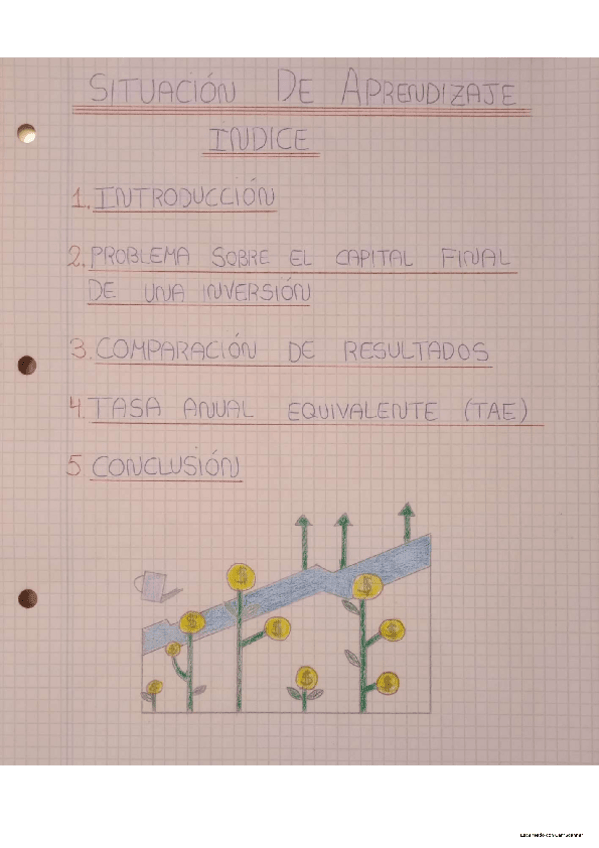 SITUACIÓN DE APRENDIZAJE
INDICE
1. INTRODUCCIÓN
2. PROBLEMA SOBRE EL CAPITAL FINAL
DE UNA INVERSIÓN
3. COMPARACIÓN DE RESULTADOS
4. TASA ANUAL EQUIVALENTE (TAE)
5 CONCLUSIÓN
$
$
$
$
$
$
$
$
$